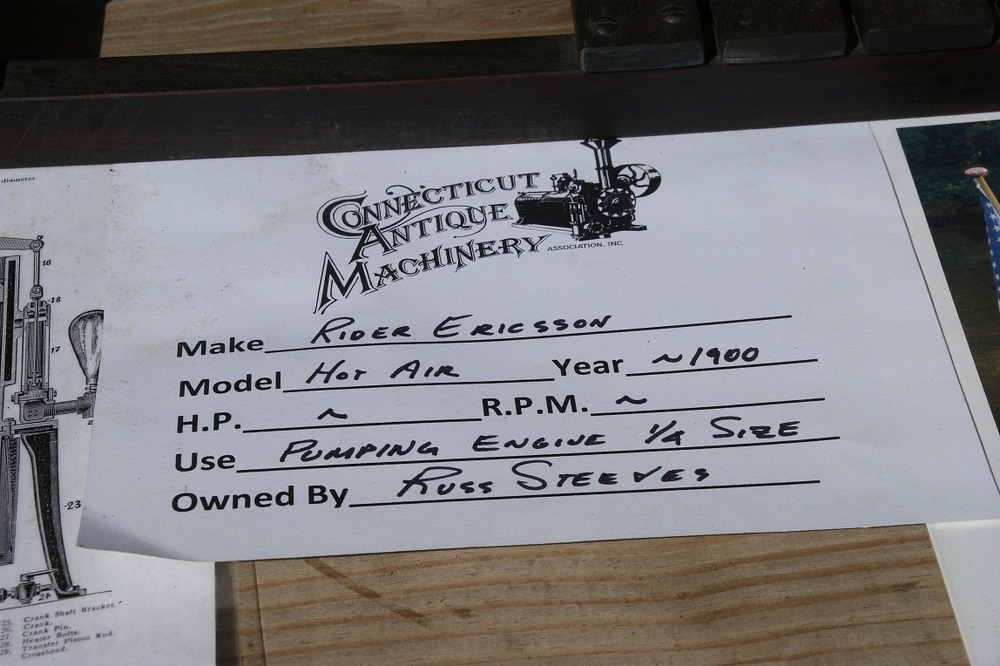 diameter
16
18
17
22
23
24
CONNECTICUT
ANTIQUE
MACHINERY
ASSOCIATION, INC.
Make RIDER ERICSSON
Model HOT AIR Year ~1900
H.P. ~ R.P.M. ~
Use PUMPING ENGINE 1/4 SIZE
Owned By RUSS STEEVES
25. Crank Shaft Bracket.
26. Crank.
27. Crank Pin.
28. Heater Bolts.
29. Transfer Piston Rod.
Crosshead.